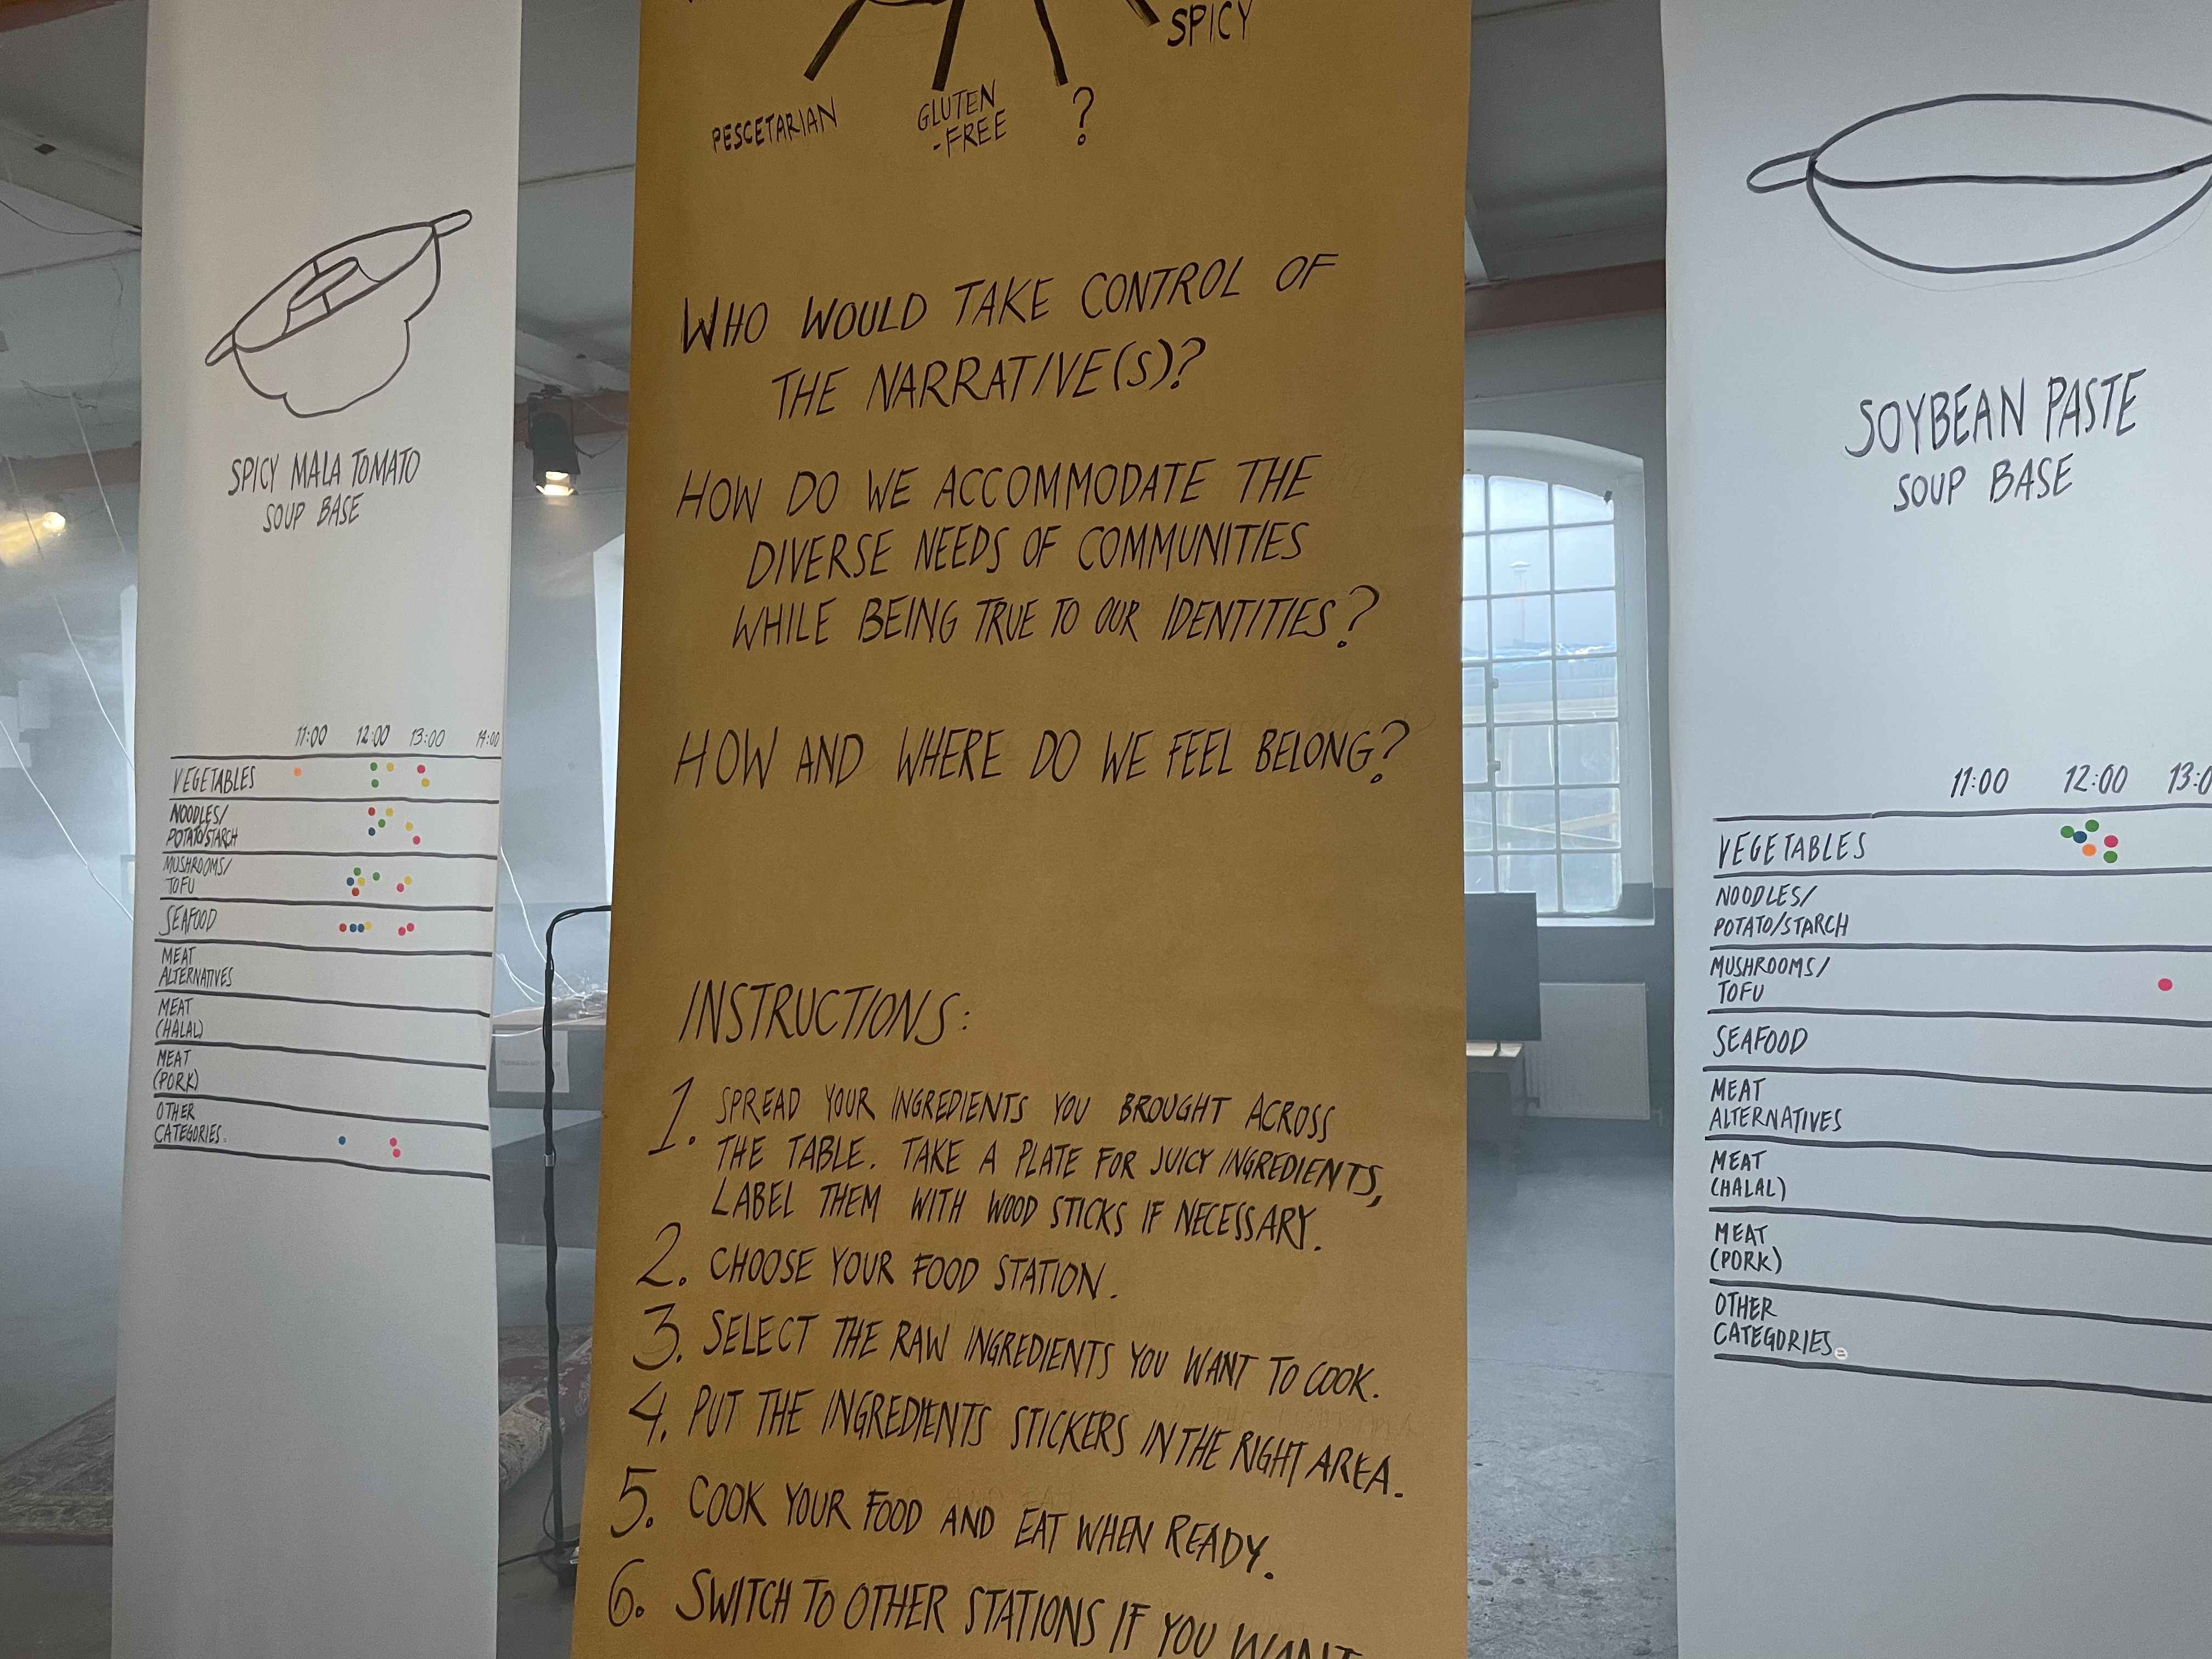 SPICY MALA TOMATO
SOUP BASE
11:00 12:00 13:00 14:00
VEGETABLES
NOODLES/
POTATO/STARCH
MUSHROOMS/
TOFU
SEAFOOD
MEAT
ALTERNATIVES
MEAT
(HALAL)
MEAT
(PORK)
OTHER
CATEGORIES:
SPICY
PESCETARIAN
GLUTEN
-FREE
?
WHO WOULD TAKE CONTROL OF
THE NARRATIVE(S)?
HOW DO WE ACCOMMODATE THE
DIVERSE NEEDS OF COMMUNITIES
WHILE BEING TRUE TO OUR IDENTITIES?
HOW AND WHERE DO WE FEEL BELONG?
INSTRUCTIONS:
1. SPREAD YOUR INGREDIENTS YOU BROUGHT ACROSS
THE TABLE. TAKE A PLATE FOR JUICY INGREDIENTS,
LABEL THEM WITH WOOD STICKS IF NECESSARY.
2. CHOOSE YOUR FOOD STATION.
3. SELECT THE RAW INGREDIENTS YOU WANT TO COOK.
4. PUT THE INGREDIENTS STICKERS IN THE RIGHT AREA.
5. COOK YOUR FOOD AND EAT WHEN READY.
6. SWITCH TO OTHER STATIONS IF YOU WANT
SOYBEAN PASTE
SOUP BASE
11:00 12:00 13:0
VEGETABLES
NOODLES/
POTATO/STARCH
MUSHROOMS/
TOFU
SEAFOOD
MEAT
ALTERNATIVES
MEAT
(HALAL)
MEAT
(PORK)
OTHER
CATEGORIES